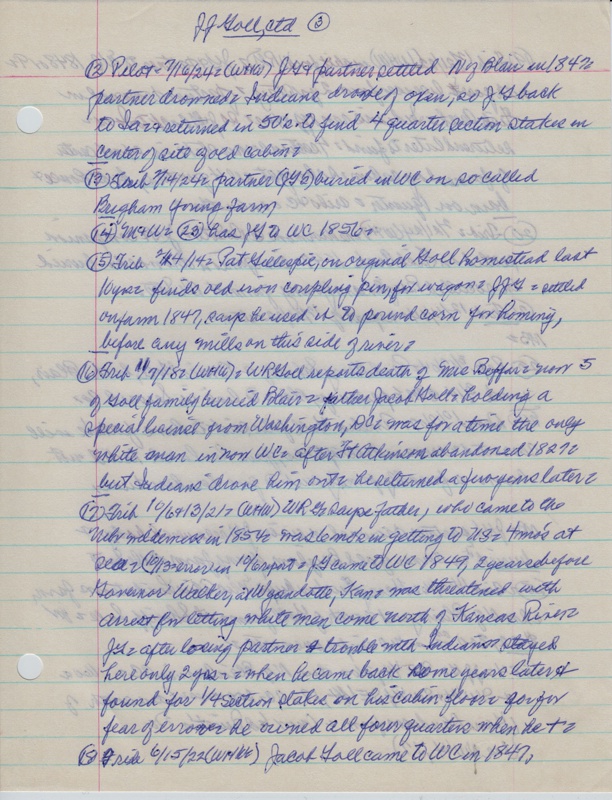 JJ Goll, ctd ③
⑫ Pilot = 7/16/24 = (WHW) JG + partner settled N of Blair in 1847 =
partner drowned = Indians drove off open, so JG back
to Ia = returned in 50's to find 4 quarter section stakes in
center of site of old cabin =
⑬ Trib 7/14/24 = partner (JG) buried in WC on so called
Brigham Young farm
⑭ = ㉓ has JG to WC 1856 =
⑮ Trib 4/14 = Pat Gillespie, on original Goll homestead last
10 yrs = finds old iron coupling pin, for wagon = JJG = settled
on farm 1847, says he used it to pound corn for homing,
before any mills on this side of river =
⑯ Trib 1/7/18 = (WHW) = WR Goll reports death of Mrs = now 5
of Goll family buried Blair = father Jacob Goll = holding a
special license from Washington, DC = was for a time the only
white man in now WC = after Ft Atkinson abandoned 1827 =
but Indians drove him out = he returned a few years later =
⑰ Trib 10/6+13/21 = (WHW) WR G says father, who came to the
in 1854 = was 6 mos in getting to US = 4 mos at
sea = (10/13 error in 10/6 report = JG came to WC 1847, 2 years before
Governor Walker, at Wyandotte, Kan = was threatened with
arrest for letting white men come north of Kansas River =
JG = after losing partner + trouble with Indians stayed
here only 2 yrs = when he came back some years later +
found four 1/4 section stakes on his cabin floor = for
fear of error = he owned all four quarters when he † =
⑱ Trib 6/15/22 (WHW) Jacob Goll came to WC in 1847,